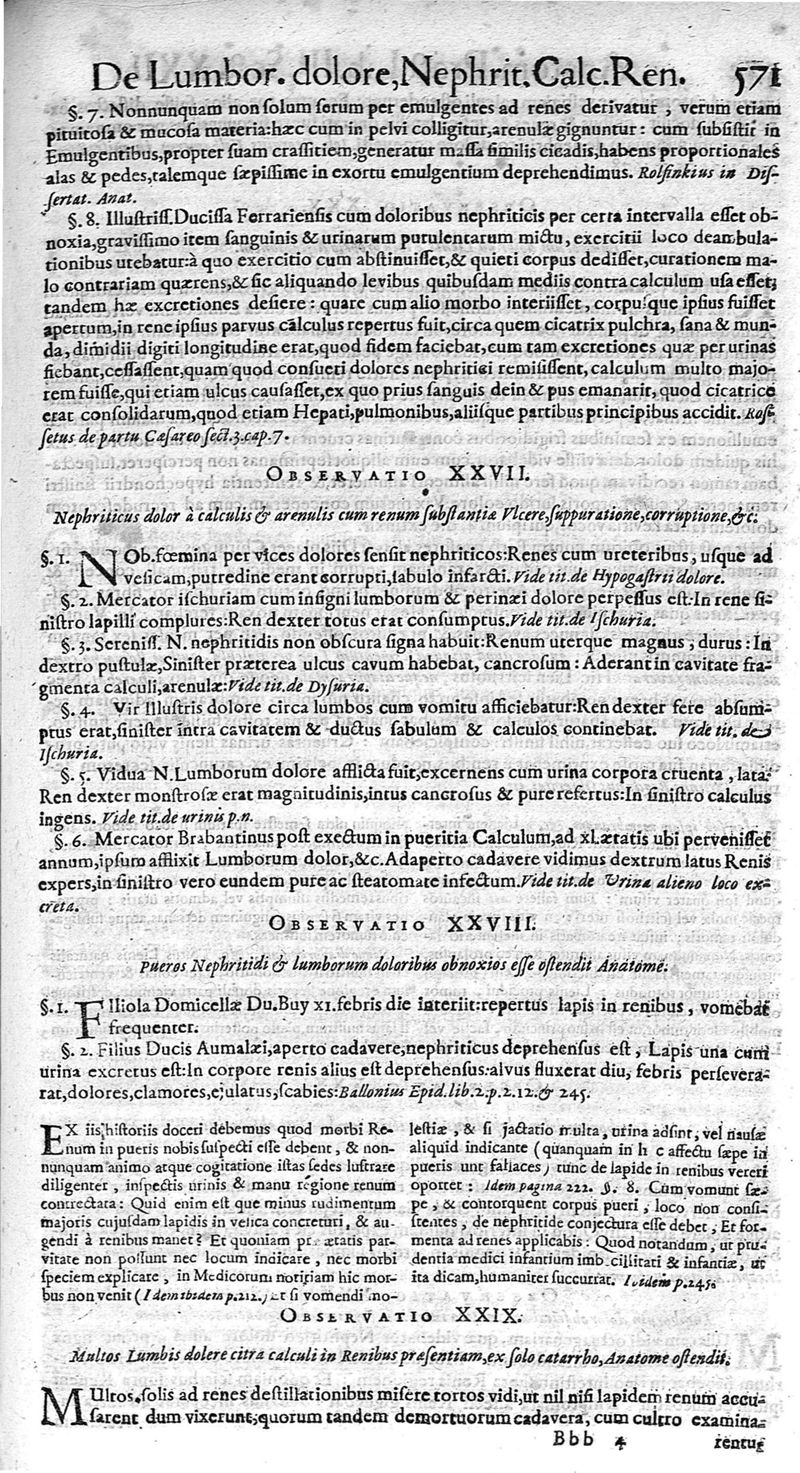 De Lumbor. dolore, Nephrit. Calc. Ren. 571
§. 7. Nonnunquam non solum serum per emulgentes ad renes derivatur, verum etiam
pituitosa & mucosa materia: hæc cum in pelvi colligitur, arenulæ gignuntur: cum subsistit in
Emulgentibus, propter suam crassitiem, generatur massa similis cicadis, habens proportionales
alas & pedes, talemque sæpissime in exortu emulgentium deprehendimus. Rolfinkius in Dis-
sertat. Anat.
§. 8. Illustriss. Ducissa Ferrariensis cum doloribus nephriticis per certa intervalla esset ob-
noxia, gravissimo item sanguinis & urinarum purulentarum mictu, exercitii loco deambula-
tionibus utebatur: à quo exercitio cum abstinuisset, & quieti corpus dedisset, curationem ma-
lo contrariam quærens, & sic aliquando levibus quibusdam mediis contra calculum usa esset;
tandem hæ excretiones desiere: quare cum alio morbo interiisset, corpusque ipsius fuisset
apertum, in rene ipsius parvus calculus repertus fuit, circa quem cicatrix pulchra, sana & mun-
da, dimidii digiti longitudine erat, quod fidem faciebat, cum tam excretiones quæ per urinas
fiebant, cessassent, quam quod consueti dolores nephritici remisissent, calculum multo majo-
rem fuisse, qui etiam ulcus causasset, ex quo prius sanguis dein & pus emanarit, quod cicatrice
erat consolidatum, quod etiam Hepati, pulmonibus, aliisque partibus principibus accidit. Ros-
setus de partu Cæsareo sect. 3. cap. 7.
OBSERVATIO XXVII.
Nephriticus dolor à calculis & arenulis cum renum substantiæ Vlcere, suppuratione, corruptione, &c.
§. 1. NOb. fœmina per vices dolores sensit nephriticos: Renes cum ureteribus, usque ad
vesicam, putredine erant corrupti, sabulo infarcti. Vide tit. de Hypogastrii dolore.
§. 2. Mercator ischuriam cum insigni lumborum & perinæi dolore perpessus est: In rene si-
nistro lapilli complures: Ren dexter totus erat consumptus. Vide tit. de Ischuria.
§. 3. Sereniss. N. nephritidis non obscura signa habuit: Renum uterque magnus, durus: In
dextro pustulæ, Sinister præterea ulcus cavum habebat, cancrosum: Aderant in cavitate fra-
gmenta calculi, arenulæ: Vide tit. de Dysuria.
§. 4. Vir Illustris dolore circa lumbos cum vomitu afficiebatur: Ren dexter fere absum-
ptus erat, sinister intra cavitatem & ductus sabulum & calculos continebat. Vide tit. de
Ischuria.
§. 5. Vidua N. Lumborum dolore afflicta fuit, excernens cum urina corpora cruenta, lata:
Ren dexter monstrosæ erat magnitudinis, intus cancrosus & pure refertus: In sinistro calculus
ingens. Vide tit. de urinis p. n.
§. 6. Mercator Brabantinus post exectum in pueritia Calculum, ad xl. ætatis ubi pervenisset
annum, ipsum afflixit Lumborum dolor, &c. Adaperto cadavere vidimus dextrum latus Renis
expers, in sinistro vero eundem pure ac steatomate infectum. Vide tit. de Urina alieno loco ex-
creta.
OBSERVATIO XXVIII.
Pueros Nephritidi & lumborum doloribus obnoxios esse ostendit Anatome.
§. 1. FIliola Domicellæ Du. Buy xi. febris die interiit: repertus lapis in renibus, vomebat
frequenter.
§. 2. Filius Ducis Aumalæi, aperto cadavere, nephriticus deprehensus est, Lapis una cum
urina excretus est: In corpore renis alius est deprehensus: alvus fluxerat diu, febris persevera-
rat, dolores, clamores, ejulatus, scabies: Ballonius Epid. lib. 2. p. 2. 12. & 245.
EX iis historiis doceri debemus quod morbi Re-
num in pueris nobis suspecti esse debent, & non-
nunquam animo atque cogitatione istas sedes lustrare
diligenter, inspectis urinis & manu regione renum
contrectata: Quid enim est que minus rudimentum
majoris cujusdam lapidis in vesica concreturi, & au-
gendi à renibus manet? Et quoniam præ ætatis par-
vitate non possunt nec locum indicare, nec morbi
speciem explicare, in Medicorum notitiam hic mor-
bus non venit (Idem ibidem p. 212.) Et si vomendi mo-
lestiæ, & si jactatio multa, urina adsint, vel nauseæ
aliquid indicante (quanquam in h c affectu sæpe in
pueris unt fallaces) tunc de lapide in renibus vereri
oportet: Idem pagina 222. §. 8. Cum vomunt sæ-
pe, & contorquent corpus pueri, loco non consi-
stentes, de nephritide conjectura esse debet, Et for-
menta ad renes applicabis: Quod notandum, ut pru-
dentia medici infantium imbecillitati & infantiæ, ut
ita dicam, humaniter succurrat. Ibidem p. 245.
OBSERVATIO XXIX.
Multos Lumbis dolere citra calculi in Renibus præsentiam, ex solo catarrho, Anatome ostendit.
MUltos solis ad renes destillationibus misere tortos vidi, ut nil nisi lapidem renum accu-
sarent dum vixerunt; quorum tandem demortuorum cadavera, cum cultro examina-
Bbb 4 rentur